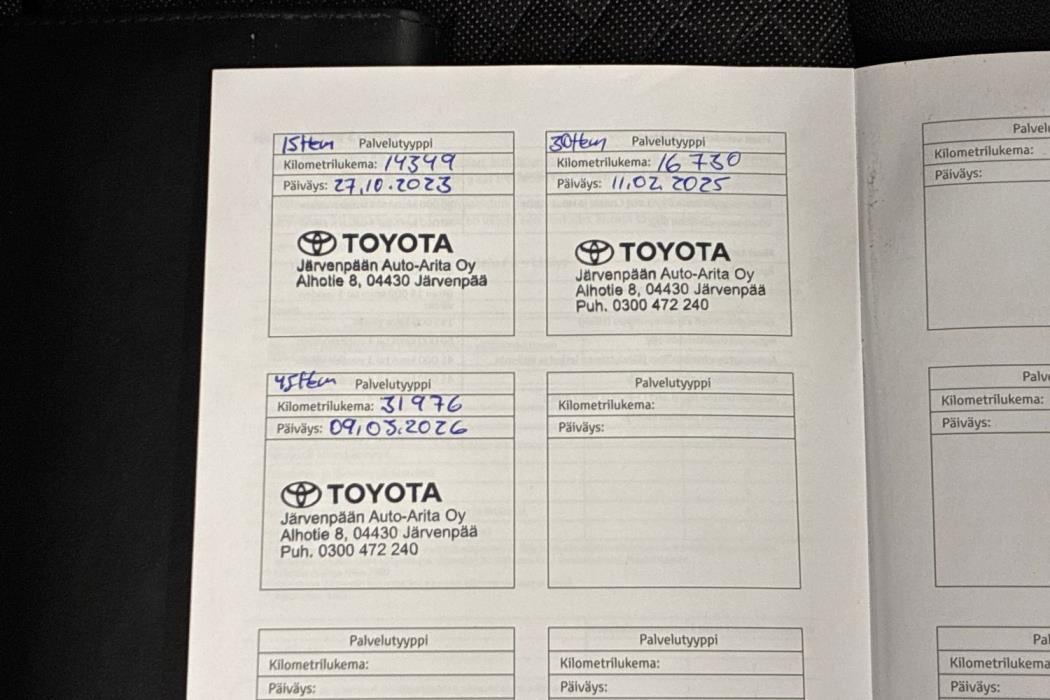 15tkm Palvelutyyppi
Kilometrilukema: 14349
Päiväys: 27.10.2023
TOYOTA
Järvenpään Auto-Arita Oy
Alhotie 8, 04430 Järvenpää
30tkm Palvelutyyppi
Kilometrilukema: 16 730
Päiväys: 11.02.2025
TOYOTA
Järvenpään Auto-Arita Oy
Alhotie 8, 04430 Järvenpää
Puh. 0300 472 240
45tkm Palvelutyyppi
Kilometrilukema: 31976
Päiväys: 09.03.2026
TOYOTA
Järvenpään Auto-Arita Oy
Alhotie 8, 04430 Järvenpää
Puh. 0300 472 240
Palvelutyyppi
Kilometrilukema:
Päiväys:
Palvelutyyppi
Kilometrilukema:
Päiväys:
Palvelutyyppi
Kilometrilukema:
Päiväys:
Palvel
Kilometrilukema:
Päiväys:
Palv
Kilometrilukema:
Päiväys:
Pal
Kilometrilukema
Päiväys: